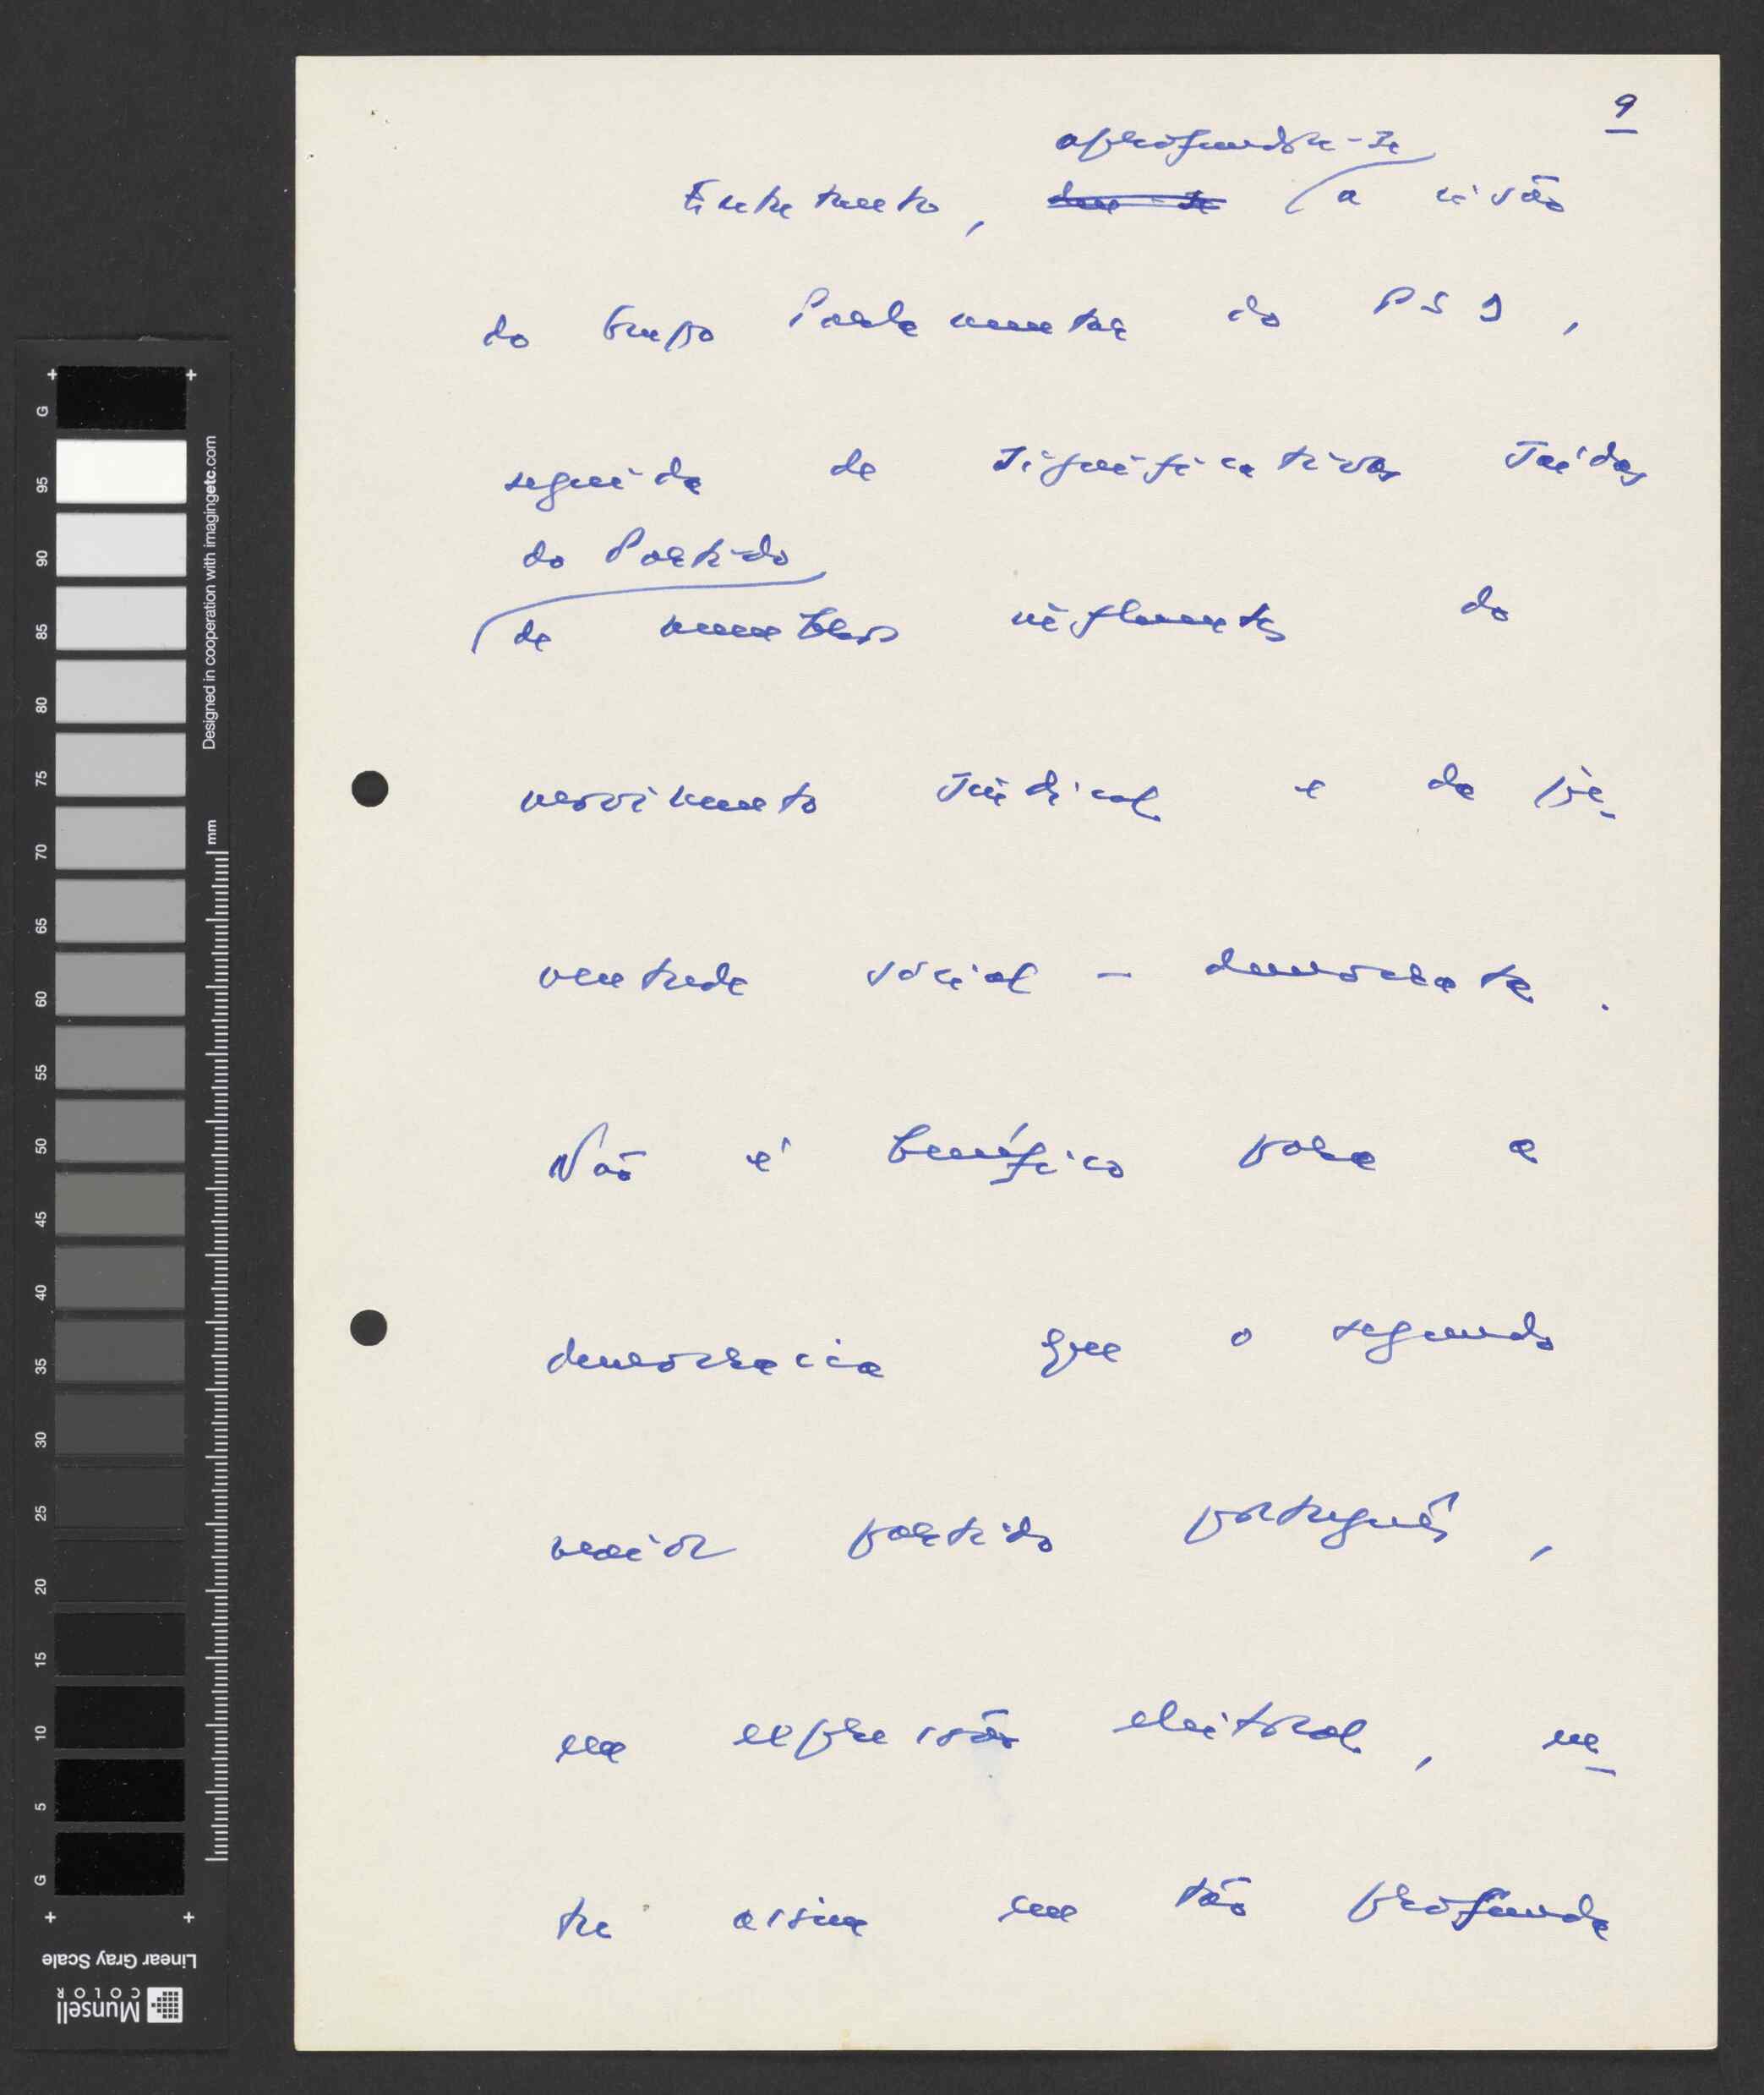 9
aprofunda-se
Entretanto, deu-se a cisão
do Grupo Parlamentar do PSD,
seguida de significativas saídas
do Partido
de membros influentes do
movimento sindical e da ju-
ventude social-democrata.
Não é benéfico para a
democracia que o segundo
maior partido português,
na expressão eleitoral, en-
tre assim em tão profunda
G
95
90
85
80
75
70
65
60
55
50
45
40
35
30
25
20
15
10
5
G
Designed in cooperation with imagingetc.com
mm
Linear Gray Scale
Munsell
COLOR